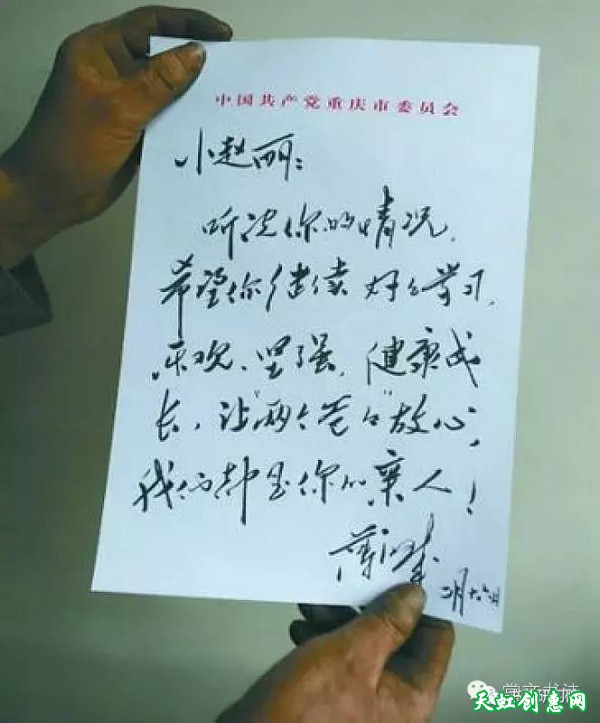 中国共产党重庆市委员会
小赵丽：
听说你的情况，
希望你继续好好学习，
乐观、坚强，健康成
长，让“两个爸爸”放心，
我们都是你的亲人！
薄熙来
二月十六日
学文书法
天虹创惠网